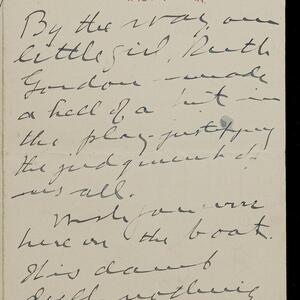 By the way, our
little girl, Ruth
Gordon - made
a hell of a hit in
the play - justifying
the judgment of
us all.
Wish you were
here on the boat.
It is damt
dull nothing